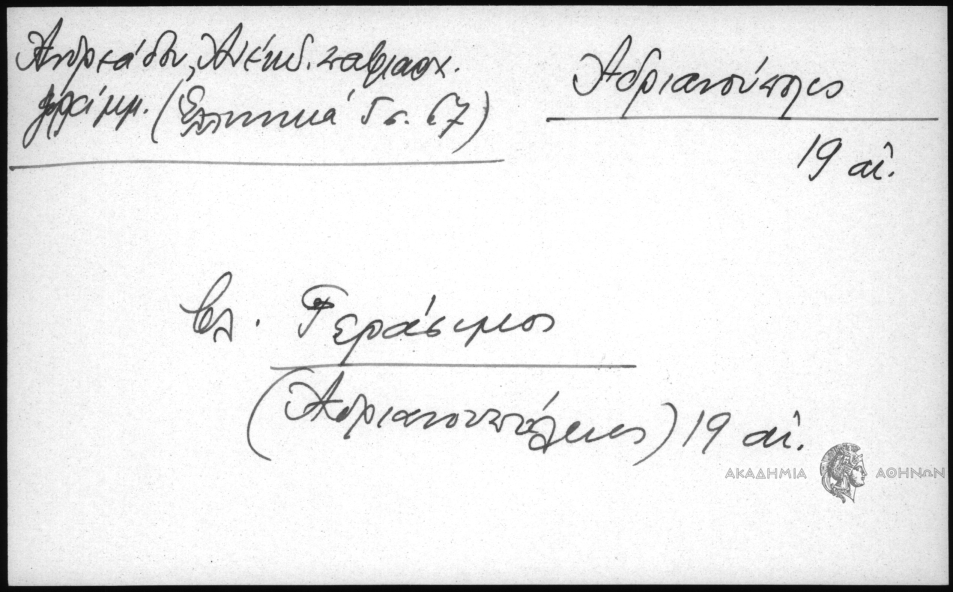 Ανδρεάδου, Ανέκδ. πατριαρχ.
γράμμ. (Ελληνικά 5 σ. 67)
Αδριανούπολις
19 αἰ.
βλ. Γεράσιμος
(Αδριανουπόλεως) 19 αἰ.
ΑΚΑΔΗΜΙΑ ΑΘΗΝΩΝ